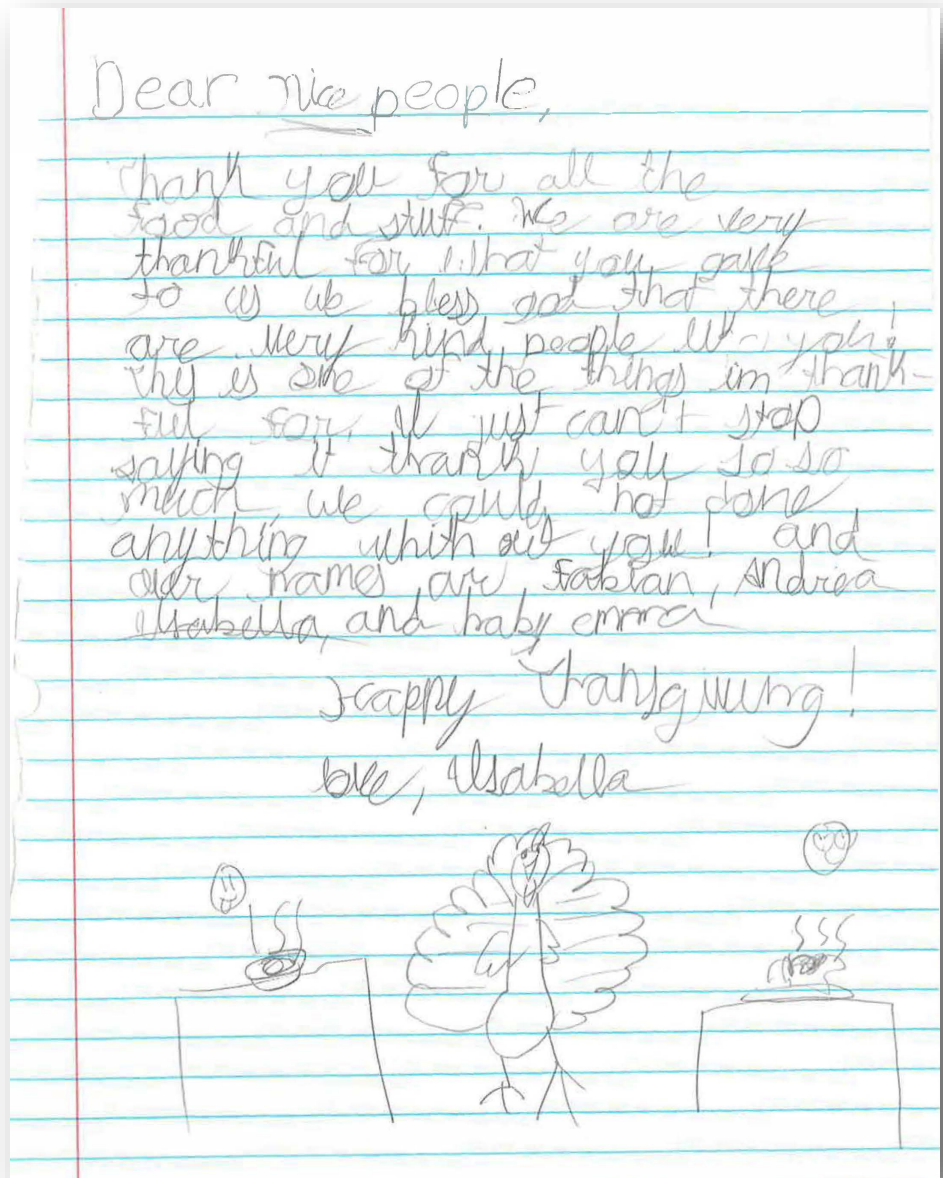 Dear nice people,
Thank you for all the
food and stuff. We are very
thankful for what you gave
to us we bless god that there
are very kind people you!
is one of the things im thank-
ful for, I just can't stop
saying it thank you so so
much we could not done
anything whith out you! and
our names are Fabian, Andrea
Isabella, and baby emma
Happy Thansgiving!
love, Isabella